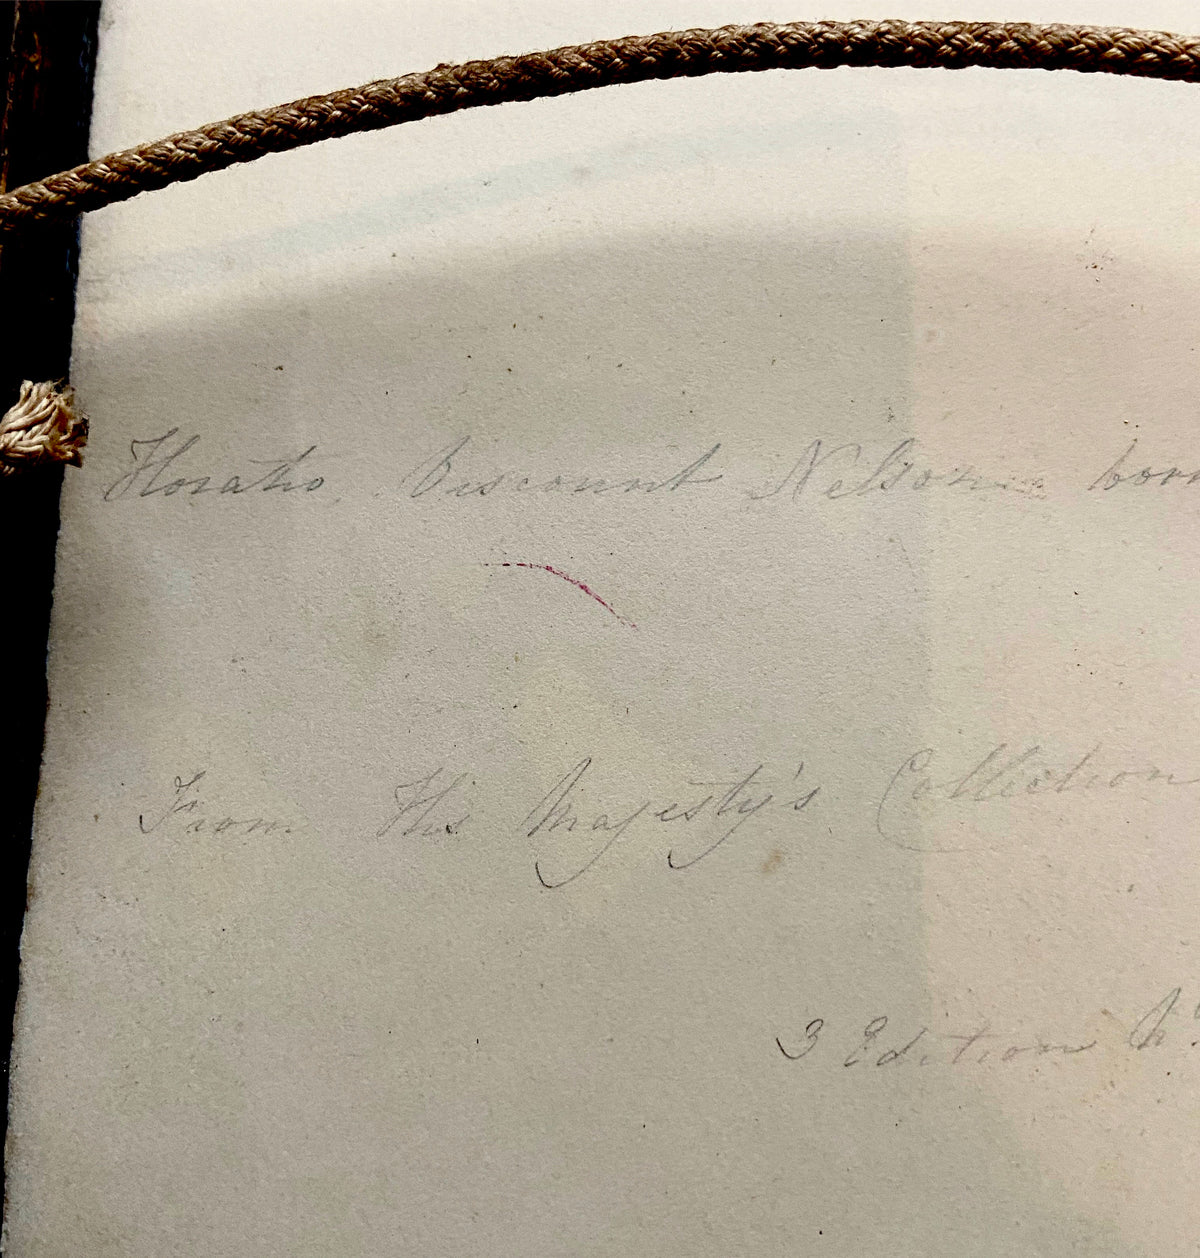 Horatio Viscount Nelson born
From His Majesty's Collection
3 Edition No